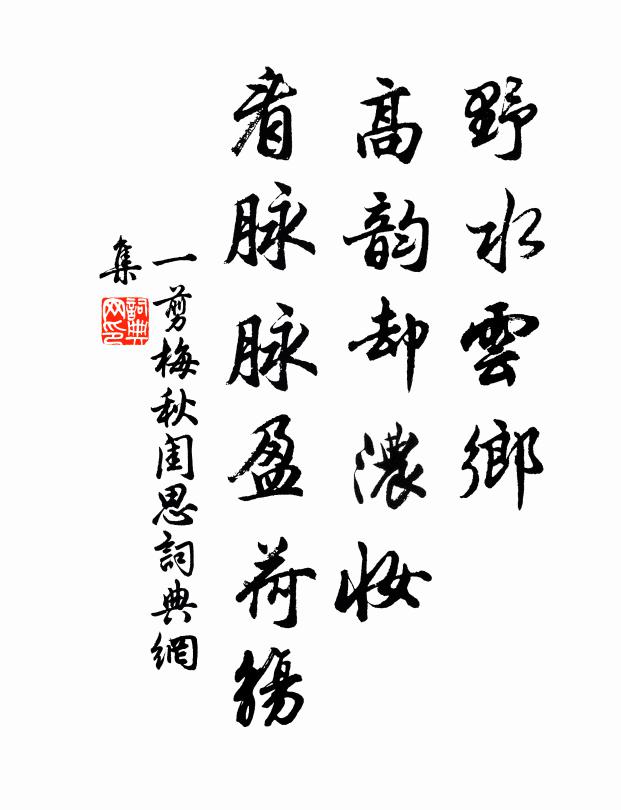 野水雲鄉
高韵却濃妝
看脉脉盈荷觴
一剪梅秋閨思詞典網
集
詞典網印